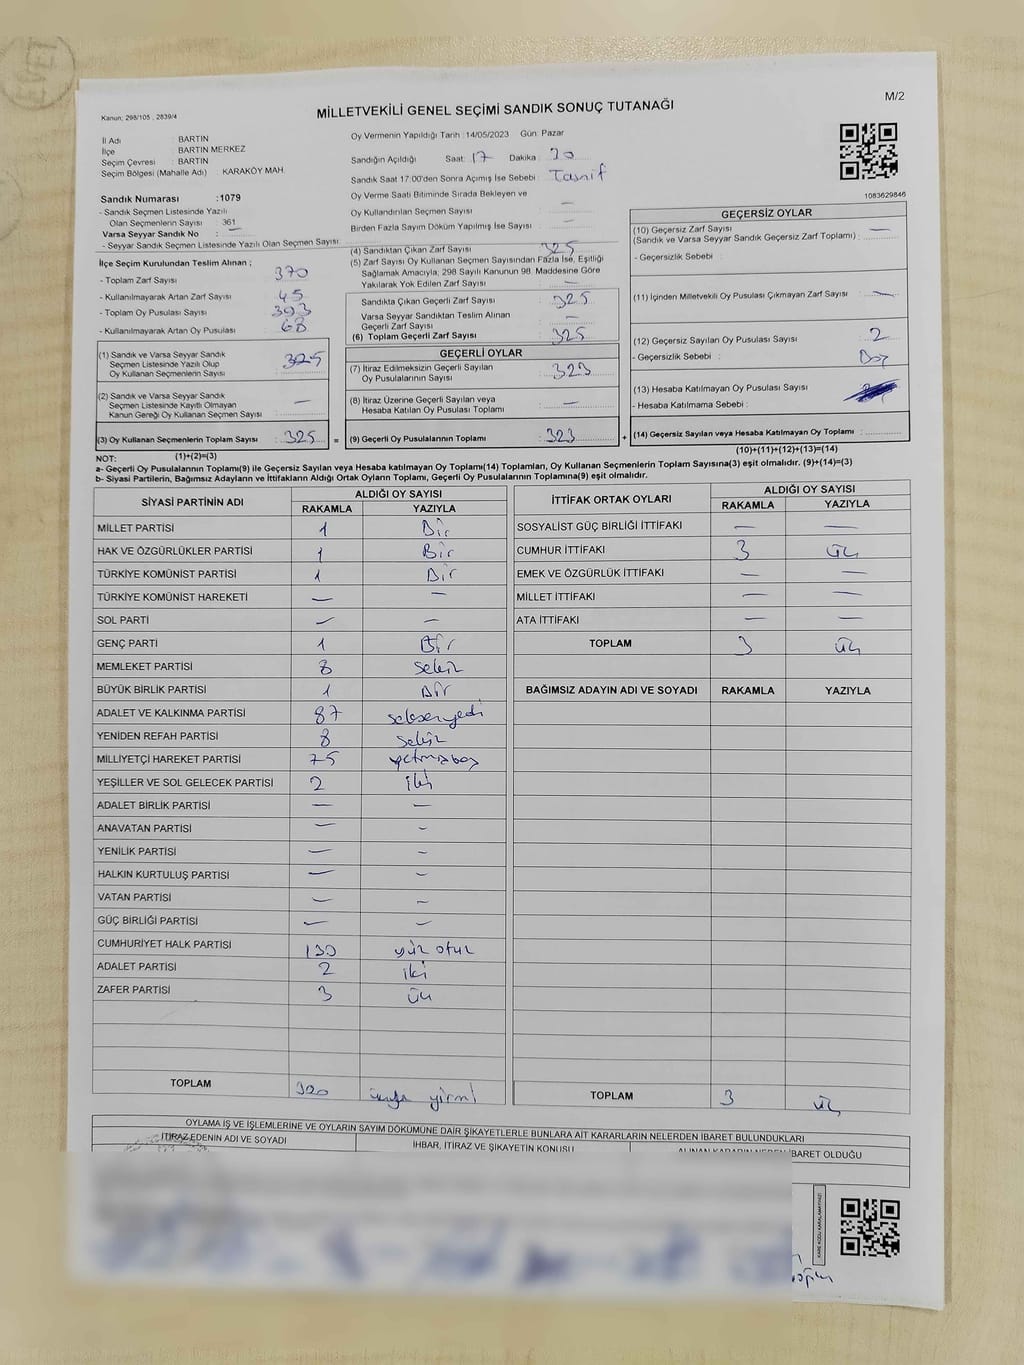 M/2
MİLLETVEKİLİ GENEL SEÇİMİ SANDIK SONUÇ TUTANAĞI
Kanun; 298/105 , 2839/4
İl Adı : BARTIN
İlçe : BARTIN MERKEZ
Seçim Çevresi : BARTIN
Seçim Bölgesi (Mahalle Adı) : KARAKÖY MAH.
Sandık Numarası :1079
- Sandık Seçmen Listesinde Yazılı
Olan Seçmenlerin Sayısı : 361
Varsa Seyyar Sandık No : —
- Seyyar Sandık Seçmen Listesinde Yazılı Olan Seçmen Sayısı:
İlçe Seçim Kurulundan Teslim Alınan ;
- Toplam Zarf Sayısı : 370
- Kullanılmayarak Artan Zarf Sayısı : 45
- Toplam Oy Pusulası Sayısı : 393
- Kullanılmayarak Artan Oy Pusulası : 68
(1) Sandık ve Varsa Seyyar Sandık
Seçmen Listesinde Yazılı Olup
Oy Kullanan Seçmenlerin Sayısı : 325
(2) Sandık ve Varsa Seyyar Sandık
Seçmen Listesinde Kayıtlı Olmayan
Kanun Gereği Oy Kullanan Seçmen Sayısı : —
(3) Oy Kullanan Seçmenlerin Toplam Sayısı : 325 =
Oy Vermenin Yapıldığı Tarih :14/05/2023 Gün: Pazar
Sandığın Açıldığı Saat: 17 Dakika : 20
Sandık Saat 17:00'den Sonra Açımış İse Sebebi : Tasnif
Oy Verme Saati Bitiminde Sırada Bekleyen ve
Oy Kullandırılan Seçmen Sayısı : —
Birden Fazla Sayım Döküm Yapılmış İse Sayısı : —
(4) Sandıktan Çıkan Zarf Sayısı : 325
(5) Zarf Sayısı Oy Kullanan Seçmen Sayısından Fazla İse, Eşitliği
Sağlamak Amacıyla; 298 Sayılı Kanunun 98. Maddesine Göre
Yakılarak Yok Edilen Zarf Sayısı : —
Sandıkta Çıkan Geçerli Zarf Sayısı : 325
Varsa Seyyar Sandıktan Teslim Alınan
Geçerli Zarf Sayısı : —
(6) Toplam Geçerli Zarf Sayısı : 325
GEÇERLİ OYLAR
(7) İtiraz Edilmeksizin Geçerli Sayılan
Oy Pusulalarının Sayısı : 323
(8) İtiraz Üzerine Geçerli Sayılan veya
Hesaba Katılan Oy Pusulası Toplamı : —
(9) Geçerli Oy Pusulalarının Toplamı : 323 +
1083629846
GEÇERSİZ OYLAR
(10) Geçersiz Zarf Sayısı : —
(Sandık ve Varsa Seyyar Sandık Geçersiz Zarf Toplamı) :
- Geçersizlik Sebebi :
(11) İçinden Milletvekili Oy Pusulası Çıkmayan Zarf Sayısı : —
(12) Geçersiz Sayılan Oy Pusulası Sayısı : 2
- Geçersizlik Sebebi : Boş
(13) Hesaba Katılmayan Oy Pusulası Sayısı
- Hesaba Katılmama Sebebi :
(14) Geçersiz Sayılan veya Hesaba Katılmayan Oy Toplamı :
NOT: (1)+(2)=(3) (10)+(11)+(12)+(13)=(14)
a- Geçerli Oy Pusulalarının Toplamı(9) ile Geçersiz Sayılan veya Hesaba katılmayan Oy Toplamı(14) Toplamları, Oy Kullanan Seçmenlerin Toplam Sayısına(3) eşit olmalıdır. (9)+(14)=(3)
b- Siyasi Partilerin, Bağımsız Adayların ve İttifakların Aldığı Ortak Oyların Toplamı, Geçerli Oy Pusulalarının Toplamına(9) eşit olmalıdır.
SİYASİ PARTİNİN ADI ALDIĞI OY SAYISI
RAKAMLA YAZIYLA
MİLLET PARTİSİ 1 Bir
HAK VE ÖZGÜRLÜKLER PARTİSİ 1 Bir
TÜRKİYE KOMÜNİST PARTİSİ 1 Bir
TÜRKİYE KOMÜNİST HAREKETİ — —
SOL PARTİ — —
GENÇ PARTİ 1 Bir
MEMLEKET PARTİSİ 8 sekiz
BÜYÜK BİRLİK PARTİSİ 1 Bir
ADALET VE KALKINMA PARTİSİ 87 seksenyedi
YENİDEN REFAH PARTİSİ 8 sekiz
MİLLİYETÇİ HAREKET PARTİSİ 75 yetmişbeş
YEŞİLLER VE SOL GELECEK PARTİSİ 2 iki
ADALET BİRLİK PARTİSİ — —
ANAVATAN PARTİSİ — —
YENİLİK PARTİSİ — —
HALKIN KURTULUŞ PARTİSİ — —
VATAN PARTİSİ — —
GÜÇ BİRLİĞİ PARTİSİ — —
CUMHURİYET HALK PARTİSİ 130 yüz otuz
ADALET PARTİSİ 2 iki
ZAFER PARTİSİ 3 üç
TOPLAM 320 üçyüz yirmi
İTTİFAK ORTAK OYLARI ALDIĞI OY SAYISI
RAKAMLA YAZIYLA
SOSYALİST GÜÇ BİRLİĞİ İTTİFAKI — —
CUMHUR İTTİFAKI 3 üç
EMEK VE ÖZGÜRLÜK İTTİFAKI — —
MİLLET İTTİFAKI — —
ATA İTTİFAKI — —
TOPLAM 3 üç
BAĞIMSIZ ADAYIN ADI VE SOYADI RAKAMLA YAZIYLA
TOPLAM 3 üç
OYLAMA İŞ VE İŞLEMLERİNE VE OYLARIN SAYIM DÖKÜMÜNE DAİR ŞİKAYETLERLE BUNLARA AİT KARARLARIN NELERDEN İBARET BULUNDUKLARI
İTİRAZ EDENİN ADI VE SOYADI İHBAR, İTİRAZ VE ŞİKAYETİN KONUSU ALINAN KARARIN NEDEN İBARET OLDUĞU
KARE KODU KARALAMAYINIZ!
EVET